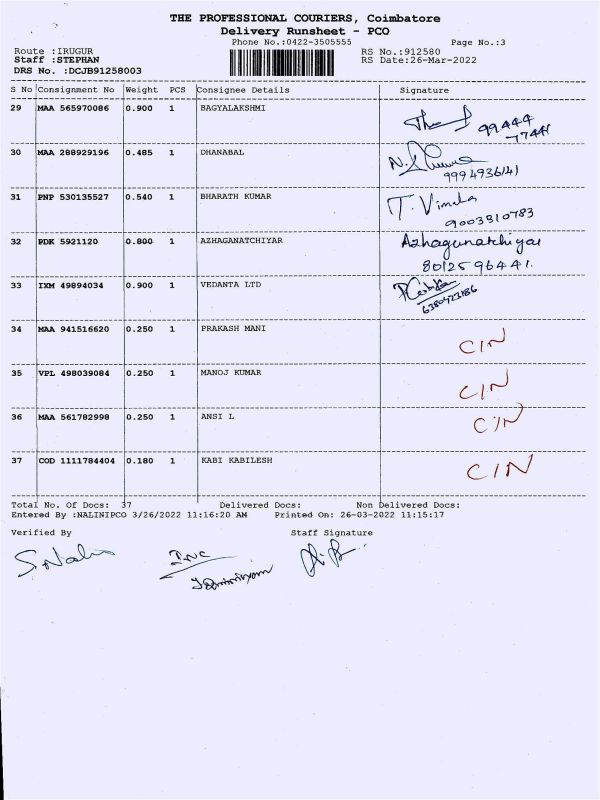 THE PROFESSIONAL COURIERS, Coimbatore
Delivery Runsheet - PCO
Phone No.:0422-3505555 Page No.:3
Route :IRUGUR RS No.:912580
Staff :STEPHAN RS Date:26-Mar-2022
DRS No. :DCJB91258003
S No Consignment No Weight PCS Consignee Details Signature
29 MAA 565970086 0.900 1 BAGYALAKSHMI
99444
77441
30 MAA 288929196 0.485 1 DHANABAL
9994936141
31 PNP 530135527 0.540 1 BHARATH KUMAR T. Vimala
9003810783
32 PDK 5921120 0.800 1 AZHAGANATCHIYAR Azhagunatchiyar
8012596441.
33 IXM 49894034 0.900 1 VEDANTA LTD
6380423186
34 MAA 941516620 0.250 1 PRAKASH MANI CIN
35 VPL 498039084 0.250 1 MANOJ KUMAR CIN
36 MAA 561782998 0.250 1 ANSI L CIN
37 COD 1111784404 0.180 1 KABI KABILESH CIN
Total No. Of Docs: 37 Delivered Docs: Non Delivered Docs:
Entered By :NALINIPCO 3/26/2022 11:16:20 AM Printed On: 26-03-2022 11:15:17
Verified By Staff Signature
S. Nalini